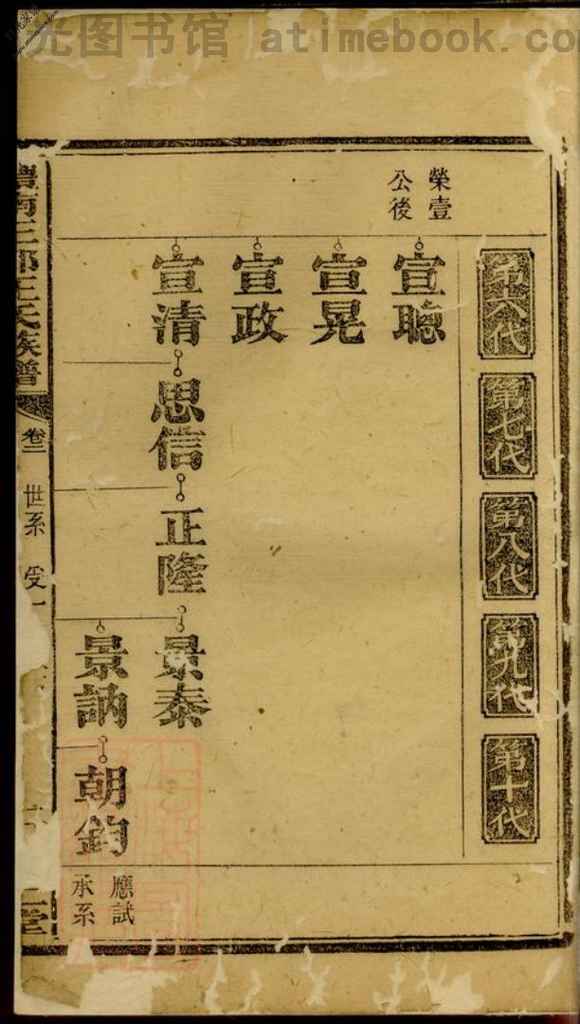 光图书馆 atimebook.com
第六代
第七代
第八代
第九代
第十代
榮壹
公後
宣聰
宣晃
宣政
宣清
思信
正隆
景泰
景訥
朝鈞
應試
承系
王氏族譜
卷二
世系